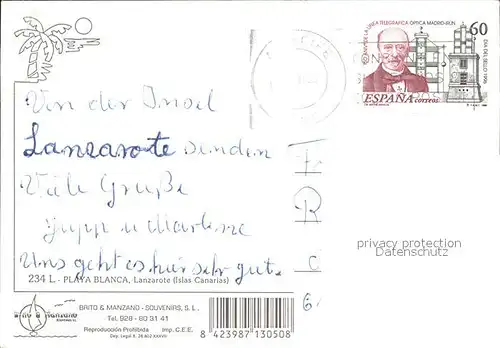 150 ANIV. DE LA LINEA TELEGRAFICA OPTICA MADRID-IRUN
60
DIA DEL SELLO 1996
ESPAÑA correos
Von der Insel
Lanzarote senden
Viele Grüße
Jupp u Marlene
Uns geht es hier sehr gut.
F
R
C
6.
privacy protection
Datenschutz
234 L - PLAYA BLANCA, Lanzarote (Islas Canarias)
BRITO & MANZANO - SOUVENIRS, S. L.
Tel. 928 - 80 31 41
Reproducción Prohibida Imp. C.E.E.
8 423987 130508